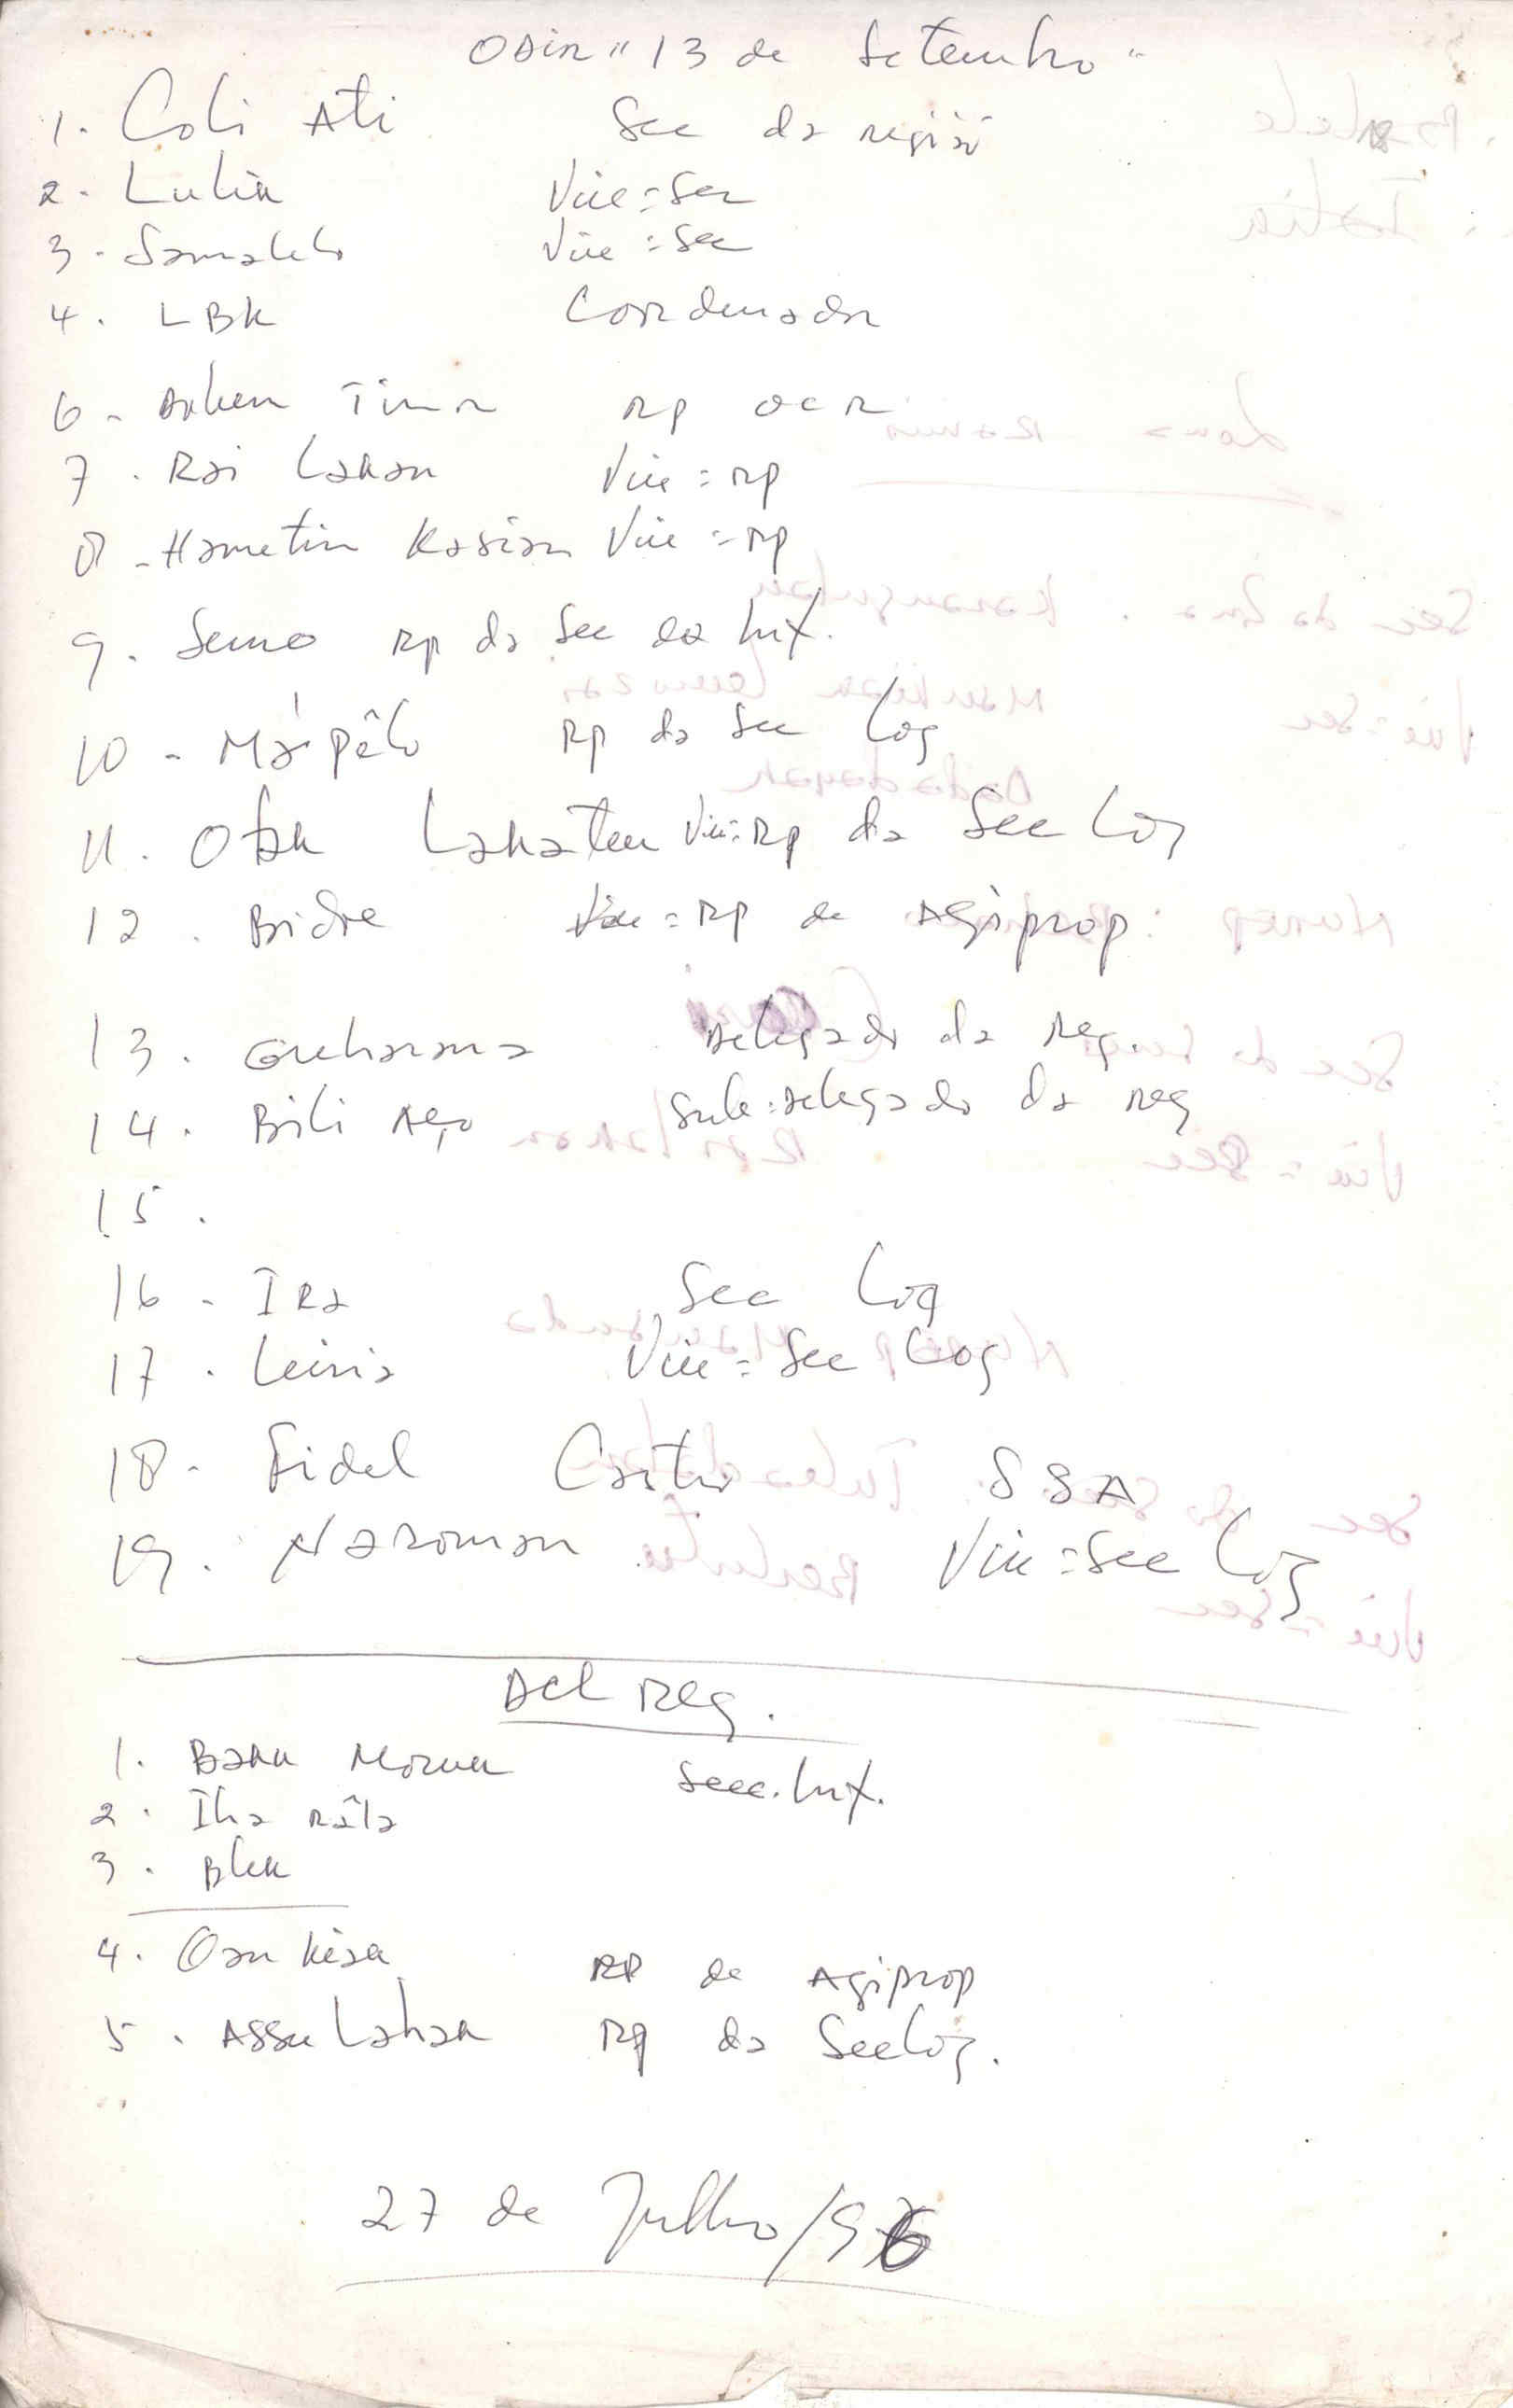 ODIR "13 de Setembro"
1. Coli Ati Sec da região
2. Lulik Vice=Sec
3. Samalelo Vice=Sec
4. LBK Coordenador
6. Timor RP OCR
7. Rai Lakan Vice=RP
8. Hametin Kasian Vice=RP
9. Semo RP da Sec da Inf.
10. Má-pêlo RP da Sec Log
11. Otan Lakaten Vice=RP da Sec Log
12. Bidre Vice=RP de Agiprop:
13. Delegado da Reg.
14. Bili Aço Sub=Delegado da Reg
15.
16. IRa Sec Log
17. Leiria Vice=Sec Log
18. Fidel Castro SSA
19. Naroman Vice=Sec Log
Del Reg.
1. Moruk Secc. Inf.
2. Iha Râla
3. Blek
4. Oan Kisak RP de Agiprop
5. Assu Lakan RP da Sec Log.
27 de Julho/96